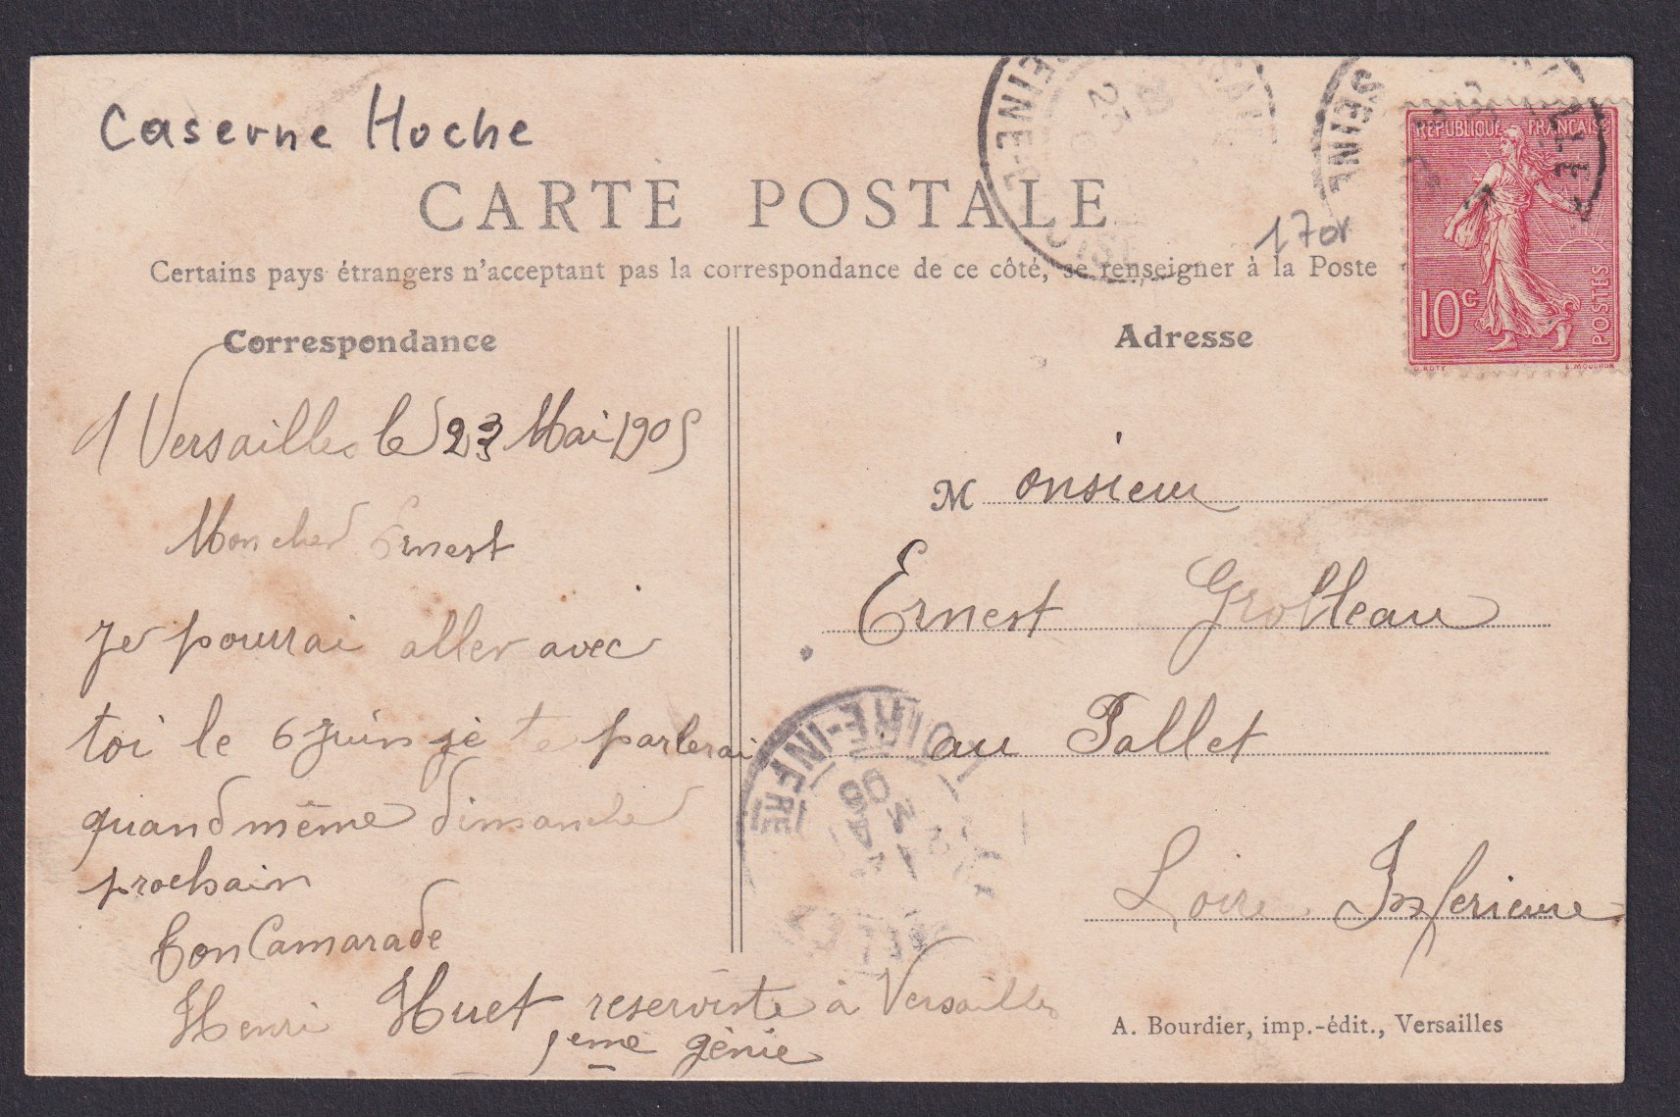 Caserne Hoche
SEINE-E
SEINE
RÉPUBLIQUE FRANÇAISE
10c
POSTES
O. ROTY
E. MOUCHON
CARTE POSTALE
170r
Certains pays étrangers n'acceptant pas la correspondance de ce côté, se renseigner à la Poste
Correspondance
Adresse
Versailles le 23 Mai 1905
Mon cher Ernest
Je pourrai aller avec
toi le 6 Juin je te parlerai
quand même dimanche
prochain
Ton Camarade
Henri Huet reserviste à Versailles
5eme génie
Monsieur
Ernest Grolleau
au Pallet
Loire Inferieure
LOIRE-INFRE
A. Bourdier, imp.-édit., Versailles